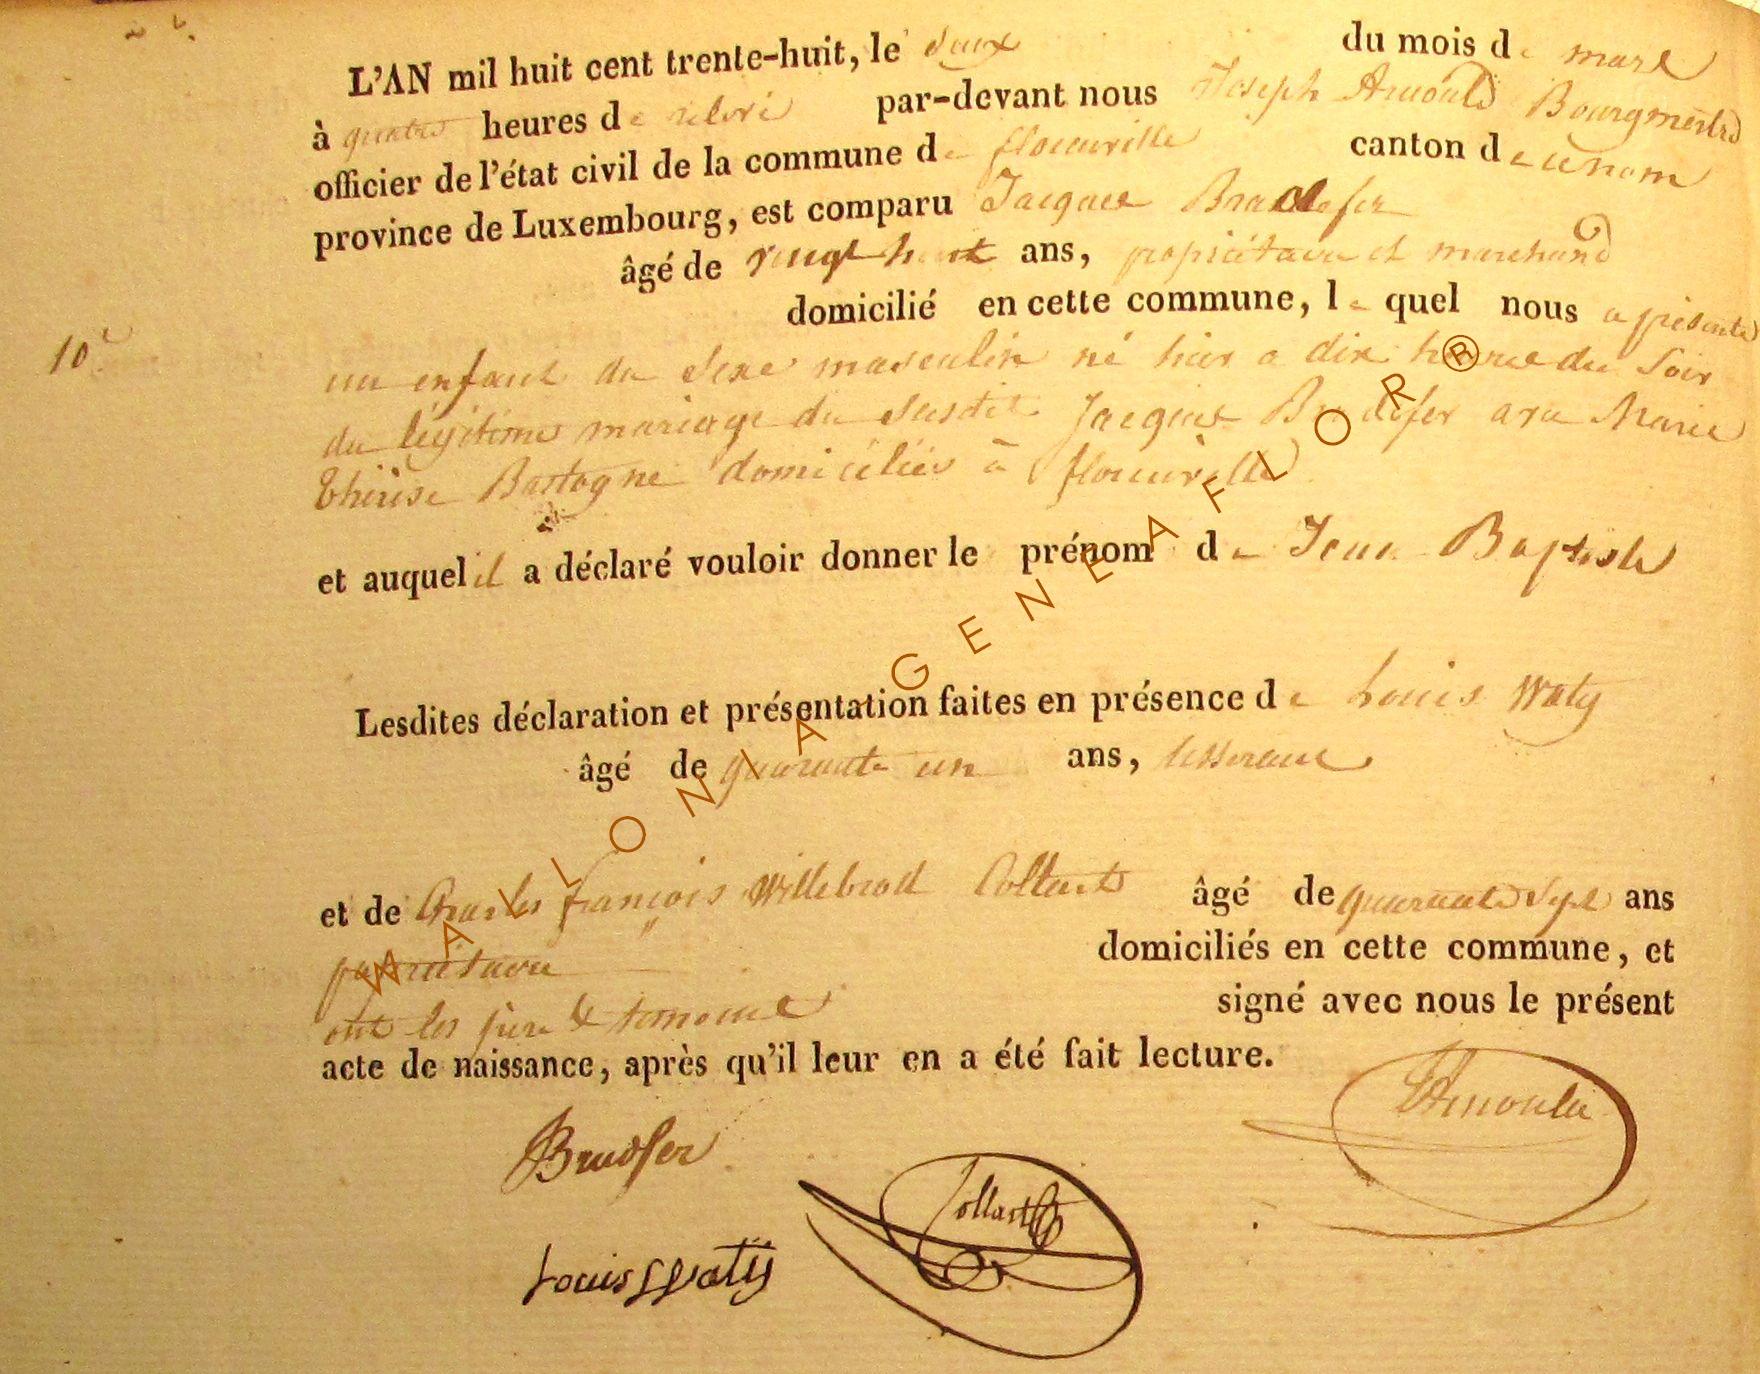 L'AN mil huit cent trente-huit, le deux du mois de mars
à quatre heures de relevé par-devant nous Joseph Arnould Bourgmestre
officier de l'état civil de la commune de flouville canton de
province de Luxembourg, est comparu Jacques Bradefer
âgé de vingt huit ans, propriétaire et marchand
domicilié en cette commune, le quel nous a présenté
10e
un enfant du sexe masculin né hier a dix heures du soir
du légitime mariage du susdit Jacques Bradefer avec Marie
thérèse Bastogne domiciliés à
et auquel il a déclaré vouloir donner le prénom de Jean Baptiste
Lesdites déclaration et présentation faites en présence de Louis Waty
âgé de quarante un ans, tisserand
et de Charles françois Willebrod Collart âgé de quarante sept ans
propriétaire domiciliés en cette commune, et
ont les père & temoins signé avec nous le présent
acte de naissance, après qu'il leur en a été fait lecture.
Bradfer
Collart
Louis Waty
WALLONIA GENEAFLOR R ®